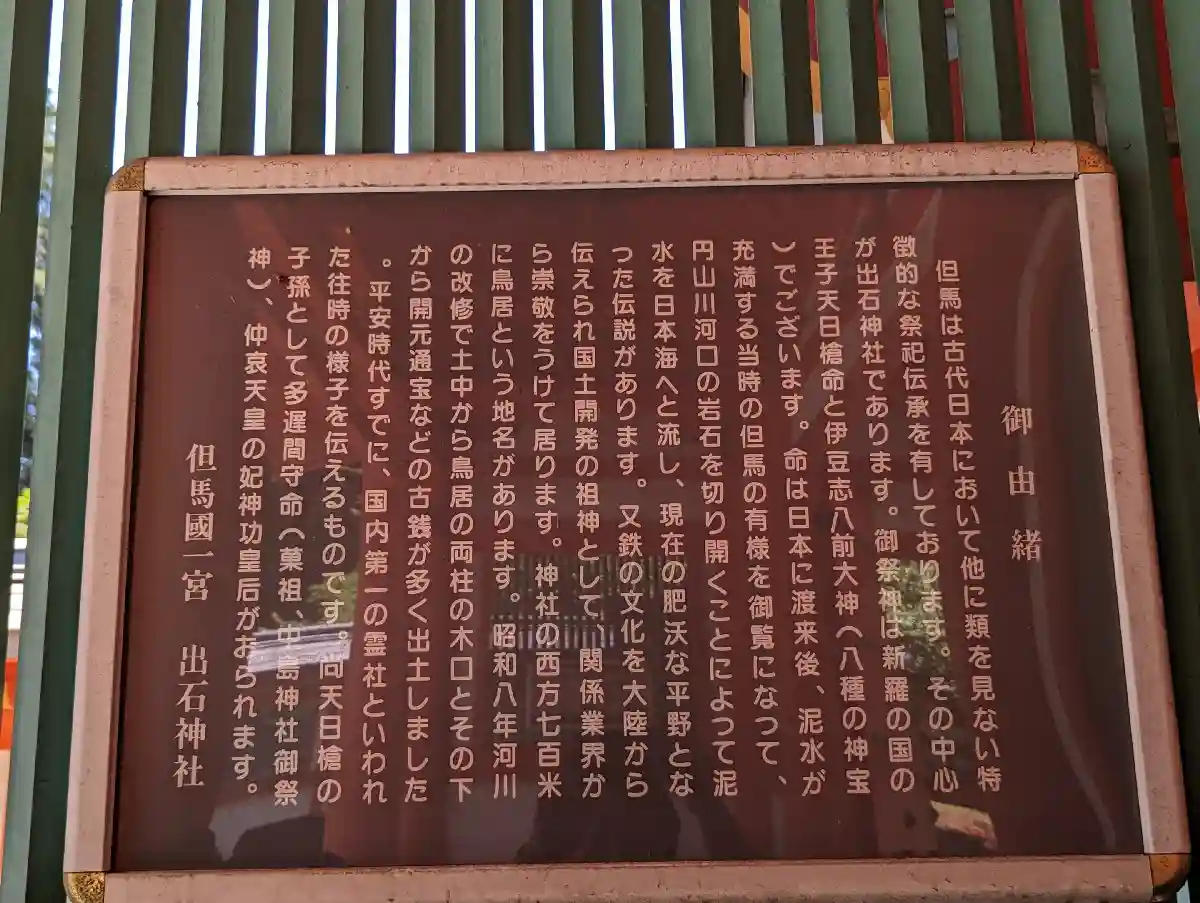 御由緒
但馬は古代日本において他に類を見ない特
徴的な祭祀伝承を有しております。その中心
が出石神社であります。御祭神は新羅の国の
王子天日槍命と伊豆志八前大神(八種の神宝
)でございます。命は日本に渡来後、泥水が
充満する当時の但馬の有様を御覧になって、
円山川河口の岩石を切り開くことによって泥
水を日本海へと流し、現在の肥沃な平野とな
った伝説があります。又鉄の文化を大陸から
伝えられ国土開発の祖神として、関係業界か
ら崇敬をうけて居ります。神社の西方七百米
に鳥居という地名があります。昭和八年河川
の改修で土中から鳥居の両柱の木口とその下
から開元通宝などの古銭が多く出土しました
。平安時代すでに、国内第一の霊社といわれ
た往時の様子を伝えるものです。尚天日槍の
子孫として多遅間守命(菓祖、中島神社御祭
神)、仲哀天皇の妃神功皇后がおられます。
但馬國一宮 出石神社